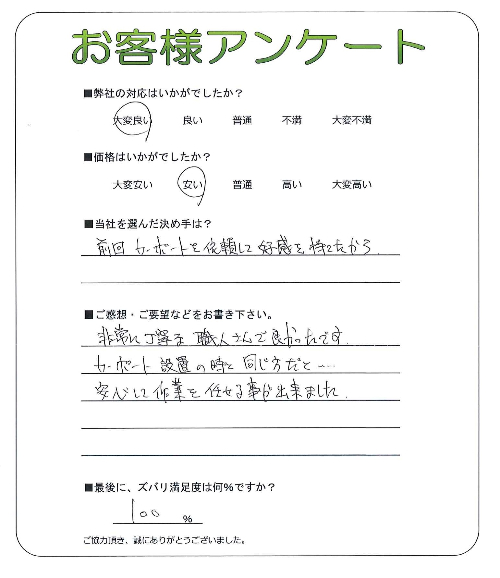 お客様アンケート
■弊社の対応はいかがでしたか？
大変良い 良い 普通 不満 大変不満
■価格はいかがでしたか？
大変安い 安い 普通 高い 大変高い
■当社を選んだ決め手は？
前回 カーポートを依頼して 好感を持てたから.
■ご感想・ご要望などをお書き下さい。
非常に丁寧な 職人さんで良かったです.
カーポート 設置の時と 同じ方だと…
安心して作業を任せる事が出来ました.
■最後に、ズバリ満足度は何％ですか？
100 %
ご協力頂き、誠にありがとうございました。